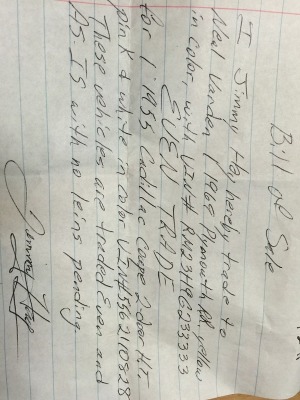 Bill of Sale
I Jimmy Hay hereby trade to
Neal Varden 1968 Plymouth RR yellow
in Color, with VIN# RM23H8G233333
EVEN TRADE
for 1 1955 Cadillac Coupe 2 door H.T.
pink & white in color VIN#556210828
These vehicles are traded Even and
AS. IS with no leins pending